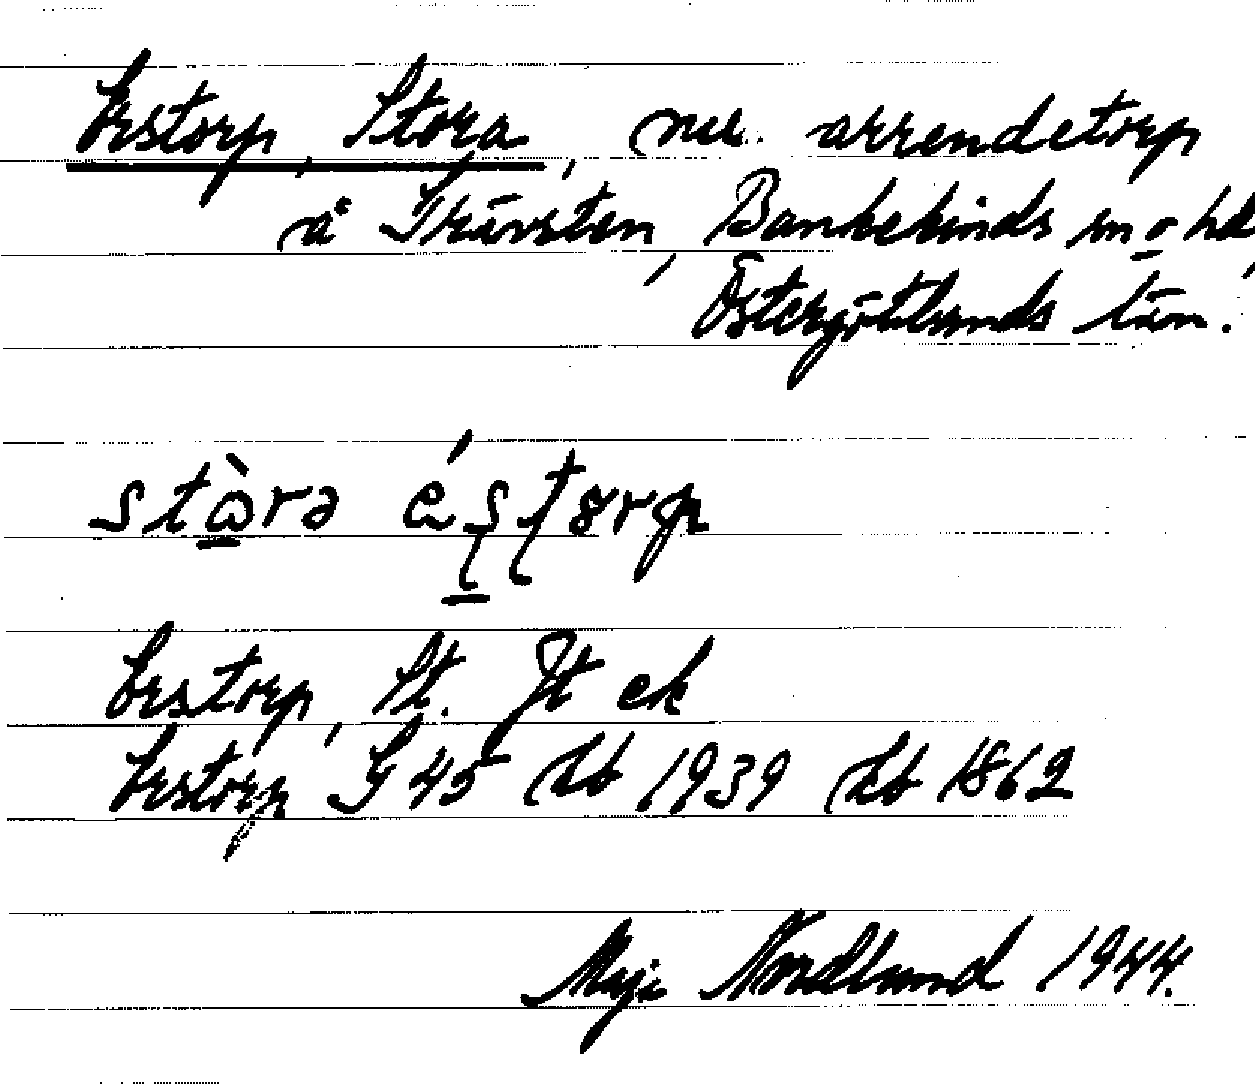 Erstorp, Stora, nu arrendetorp
å Thärsten, Bankekinds sn o hd,
Östergötlands län.
stɷ̀rə éştɞrp
Erstorp, St. Jt ek
Erstorp G 45 Db 1939 Lb 1862
Maja Nordlund 1944.